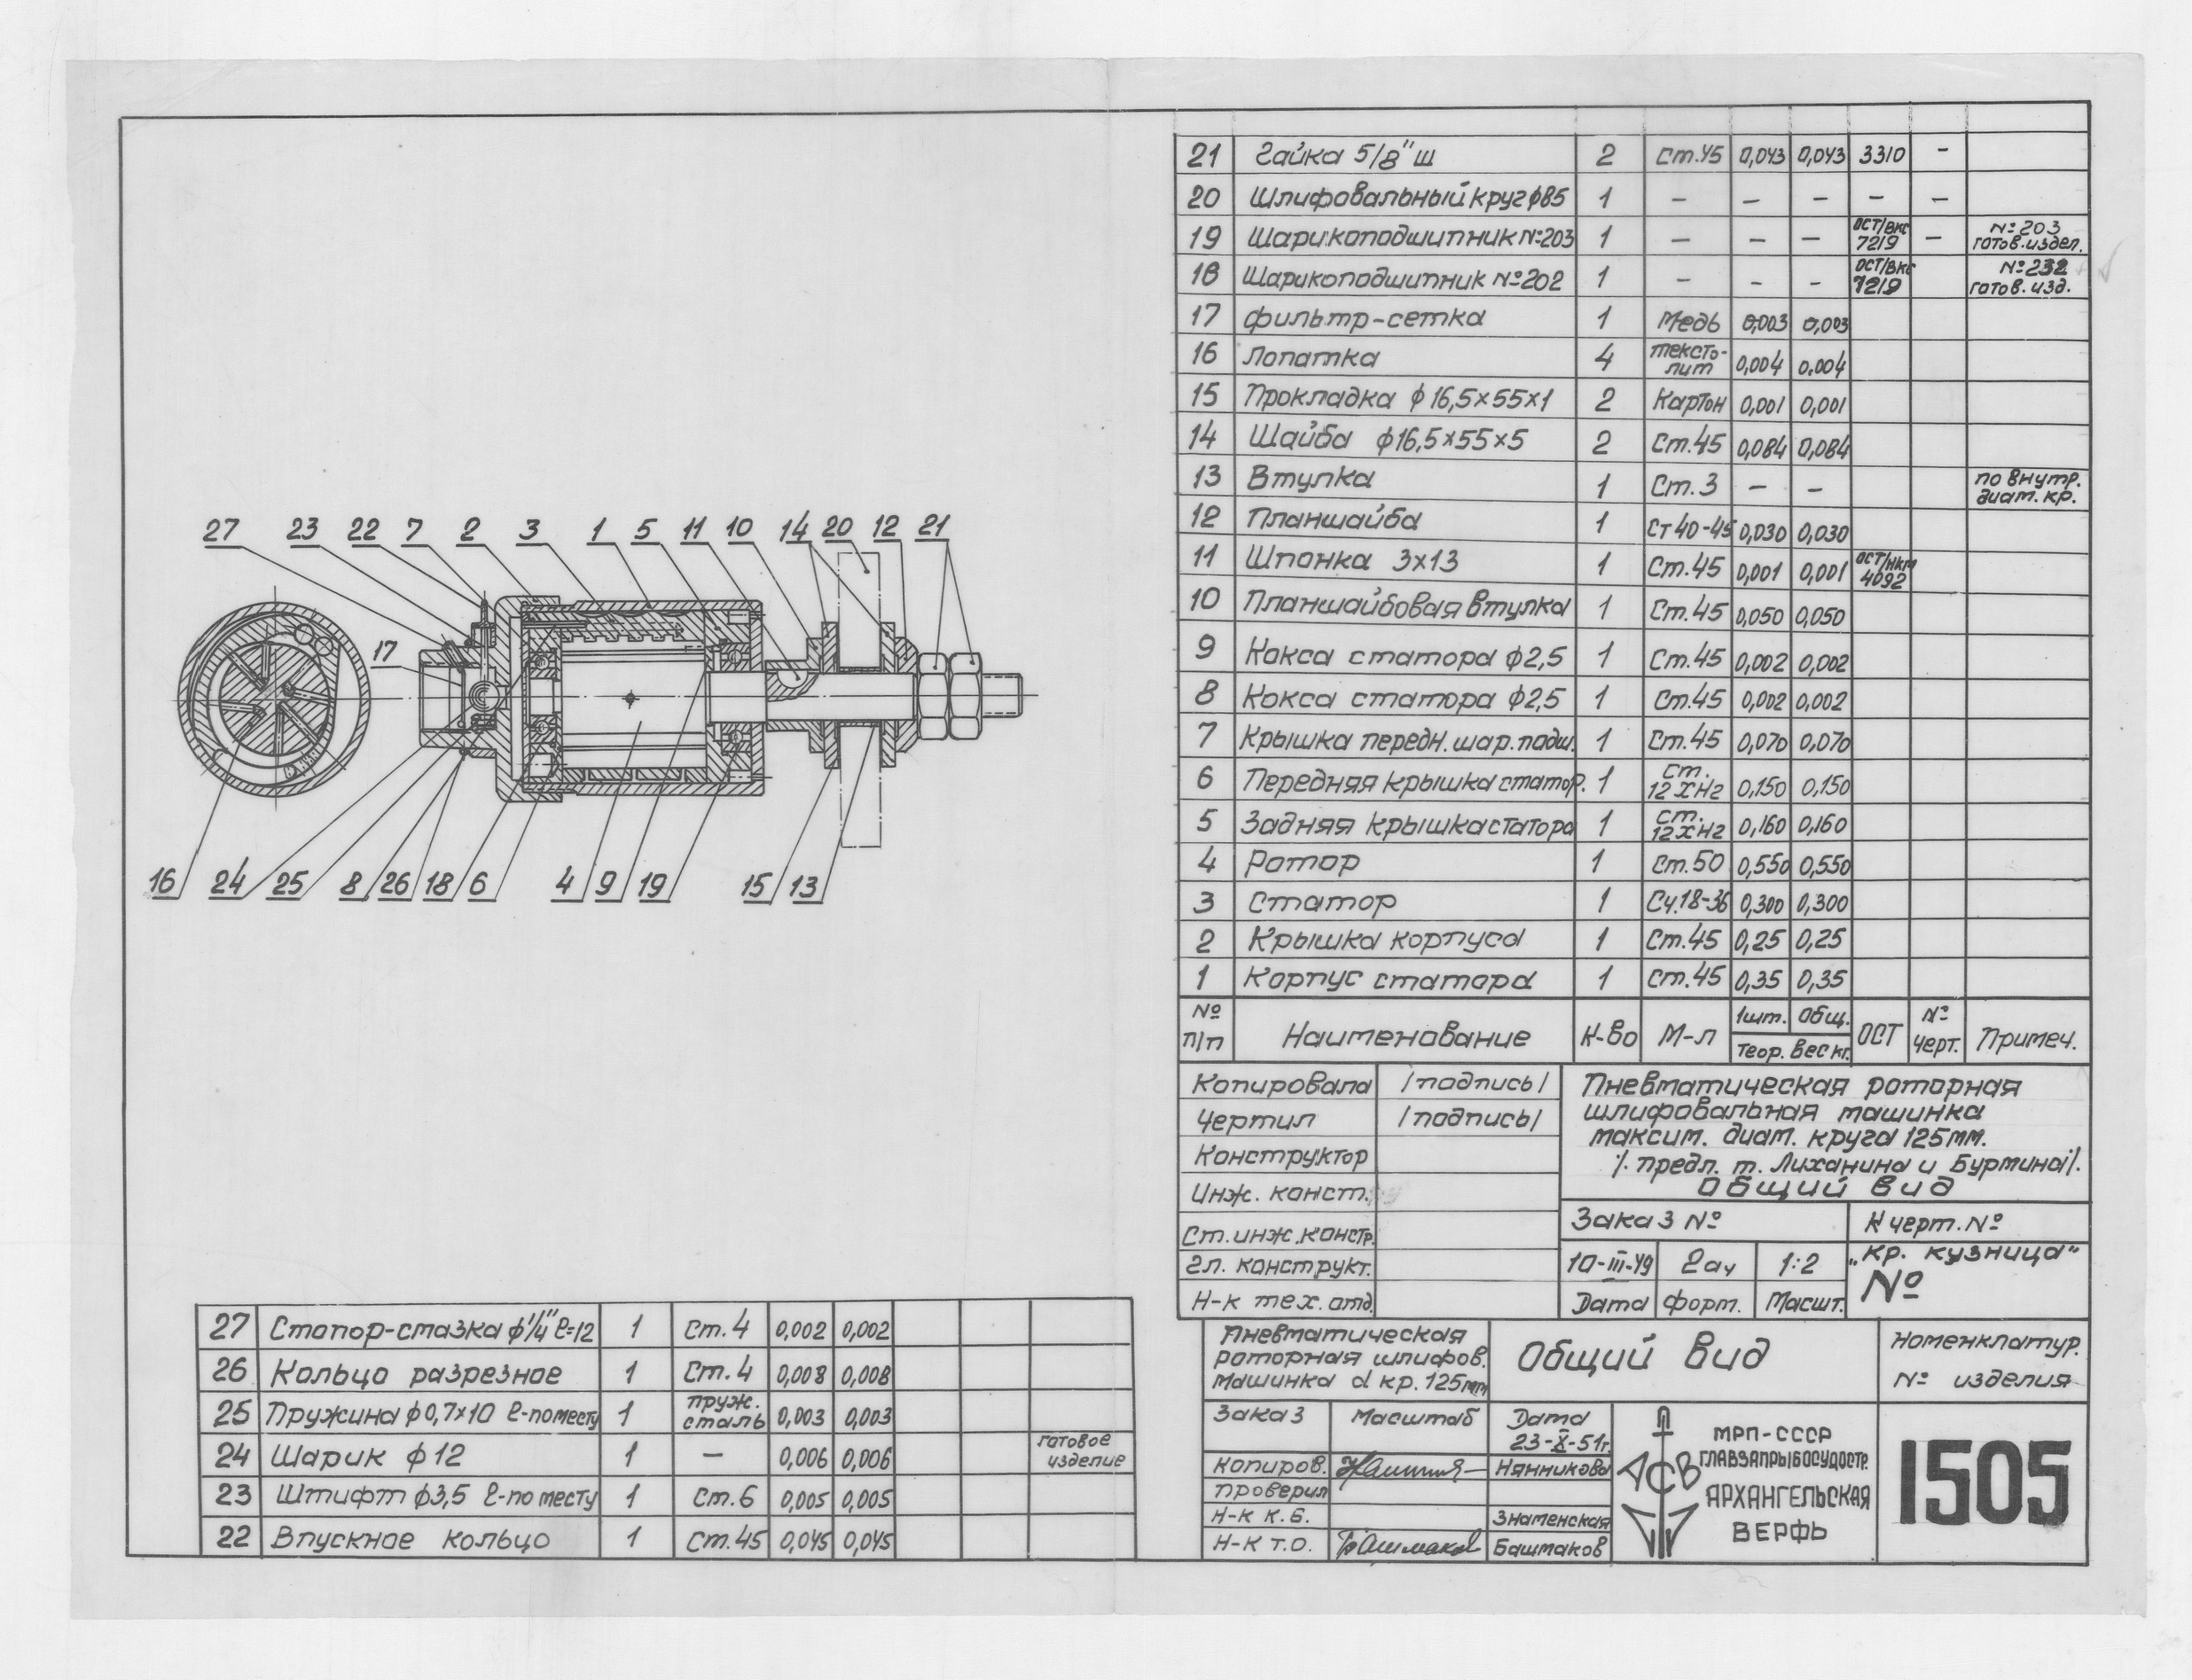 27 23 22 7 2 3 1 5 11 10 14 20 12 21
17
16 24 25 8 26 18 6 4 9 19 15 13
21 Гайка 5/8" ш 2 Ст.45 0,043 0,043 3310 –
20 Шлифовальный круг ϕ85 1 – – – – –
19 Шарикоподшипник №203 1 – – – ОСТ/вкс 7219 – №203 готов.издел.
18 Шарикоподшипник №202 1 – – – ОСТ/вкс 7219 готов. изд.
17 Фильтр-сетка 1 Медь 0,003 0,003
16 Лопатка 4 тексто-лит 0,004 0,004
15 Прокладка ϕ16,5×55×1 2 Картон 0,001 0,001
14 Шайба ϕ16,5×55×5 2 Ст.45 0,084 0,084
13 Втулка 1 Ст.3 – – по внутр. диам. кр.
12 Планшайба 1 Ст 40-45 0,030 0,030
11 Шпонка 3х13 1 Ст.45 0,001 0,001 ОСТ/нкм 4092
10 Планшайбовая втулка 1 Ст.45 0,050 0,050
9 Кокса статора ϕ2,5 1 Ст.45 0,002 0,002
8 Кокса статора ϕ2,5 1 Ст.45 0,002 0,002
7 Крышка передн. шар. подш. 1 Ст.45 0,070 0,070
6 Передняя крышка статор. 1 Ст. 12ХН2 0,150 0,150
5 Задняя крышка статора 1 Ст. 12ХН2 0,160 0,160
4 Ротор 1 Ст.50 0,550 0,550
3 Статор 1 Сч.18-36 0,300 0,300
2 Крышка корпуса 1 Ст.45 0,25 0,25
1 Корпус статора 1 Ст.45 0,35 0,35
№ п/п Наименование К-во М-л 1шт. Общ. Теор. вес кг. ОСТ № Черт. Примеч.
Копировала /подпись/
Чертил /подпись/
Конструктор
Инж. конст.
Ст.инж.констр.
Гл. конструкт.
Н-к тех. отд.
Пневматическая роторная
шлифовальная машинка
максим. диам. круга 125мм.
/. предл. т. Лиханина и Бурмина/.
Общий вид
Заказ № К черт. №
10-III-49 2а4 1:2 „Кр. кузница"
Дата Форт. Масшт. №
27 Стопор-стазка ϕ1/4" ℓ=12 1 Ст.4 0,002 0,002
26 Кольцо разрезное 1 Ст.4 0,008 0,008
25 Пружина ϕ0,7×10 ℓ-по месту 1 пруж. сталь 0,003 0,003
24 Шарик ϕ12 1 – 0,006 0,006 готовое изделие
23 Штифт ϕ3,5 ℓ-по месту 1 Ст.6 0,005 0,005
22 Впускное кольцо 1 Ст.45 0,045 0,045
Пневматическая
роторная шлифов.
машинка d кр. 125мм
Общий вид
Номенклатур.
№ изделия
Заказ Масштаб Дата
23-X-51г.
Копиров. Нянникова
Проверил
Н-к К.Б. Знаменская
Н-к Т.О. Башмаков Башмаков
АСВ
МРП-СССР
ГЛАВЗАПРЫБОСУДОСТР.
АРХАНГЕЛЬСКАЯ
ВЕРФЬ
1505